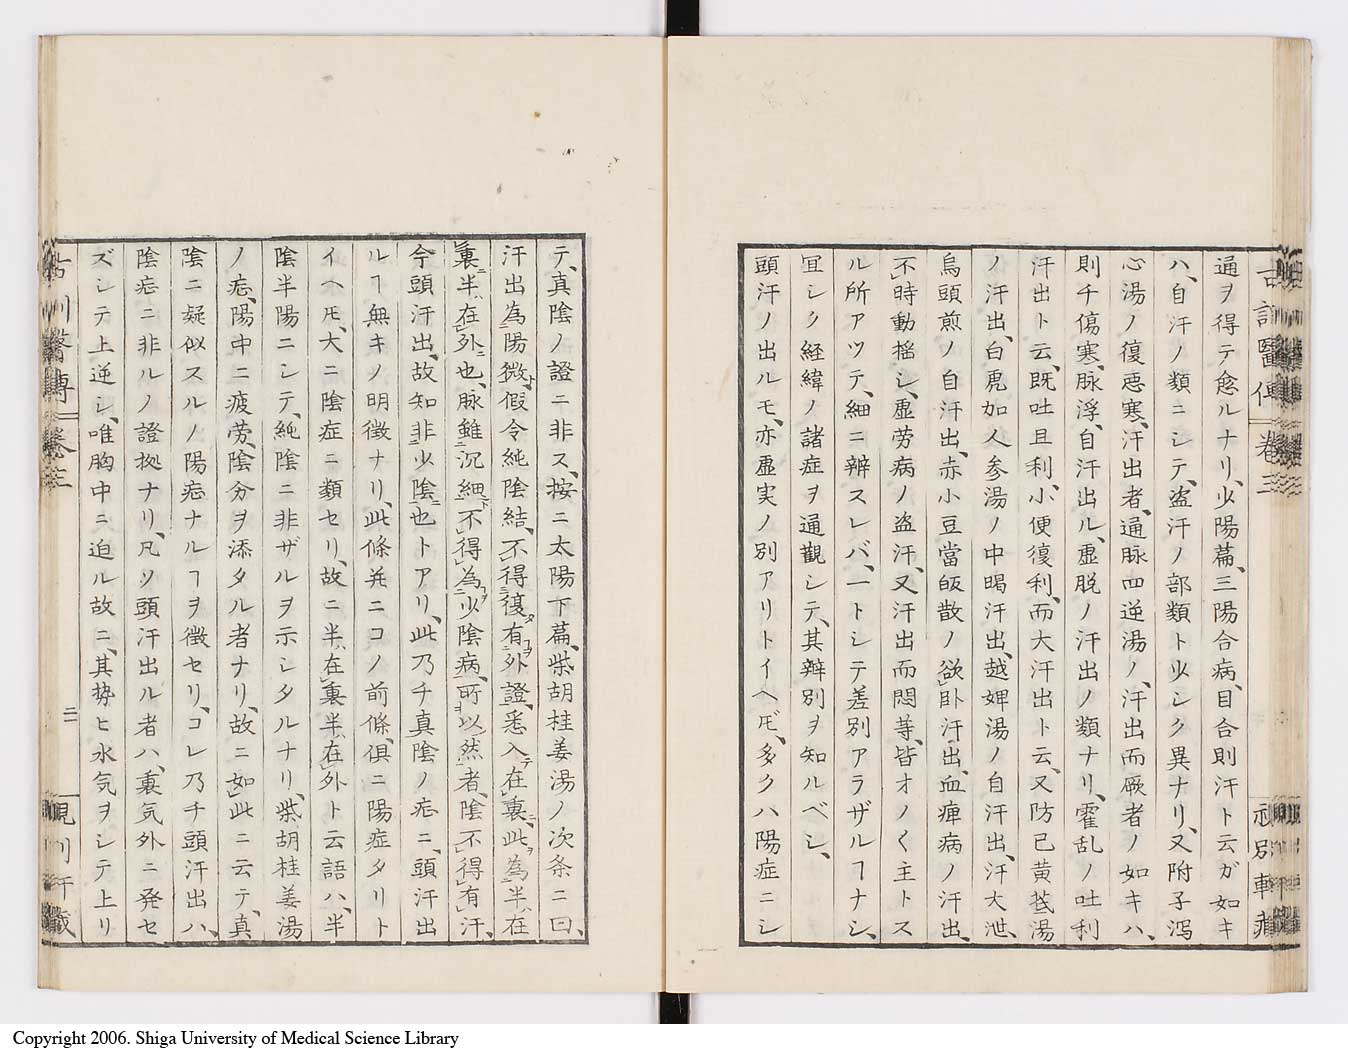 通ヲ得テ愈ルナリ、少陽篇、三陽合病、目合則汗ト云ガ如キ
ハ、自汗ノ類ニシテ、盗汗ノ部類ト少シク異ナリ、又附子瀉
心湯ノ復悪寒、汗出者、通脉四逆湯ノ、汗出而厥者ノ如キハ、
則チ傷寒、脉浮、自汗出ル、虚脱ノ汗出ノ類ナリ、霍乱ノ吐利
汗出ト云、既吐且利、小便復利、而大汗出ト云、又防已黄茋湯
ノ汗出、白虎加人参湯ノ中暍汗出、越婢湯ノ自汗出、汗大泄、
烏頭煎ノ自汗出、赤小豆當皈散ノ欲臥汗出、血痺病ノ汗出、
不時動揺シ、虚劳病ノ盗汗、又汗出而悶䓁、皆オノく主トス
ル所アツテ、細ニ辨スレバ、一トシテ差別アラザルヿナシ、
冝シク経緯ノ諸症ヲ通觀シテ、其辨別ヲ知ルベシ、
頭汗ノ出ルモ、亦虚実ノ別アリトイヘ𪜈、多クハ陽症ニシ
テ、真陰ノ證ニ非ス、按ニ太陽下篇、柴胡桂姜湯ノ次条ニ曰、
汗出為陽微、假令純陰結、不得復有外證、悉入在裏、此為半在
裏半在外也、脉雖沉細、不得為少陰病、所以然者、陰不得有汗、
今頭汗出、故知非少陰也トアリ、此乃チ真陰ノ㾏ニ、頭汗出
ルヿ無キノ明徴ナリ、此條并ニコノ前條、俱ニ陽症タリト
イヘ𪜈、大ニ陰症ニ類セリ、故ニ半在裏半在外ト云語ハ、半
陰半陽ニシテ、純陰ニ非ザルヲ示シタルナリ、柴胡桂姜湯
ノ㾏、陽中ニ疲劳、陰分ヲ添タル者ナリ、故ニ如此ニ云テ、真
陰ニ疑似スルノ陽㾏ナルヿヲ徴セリ、コレ乃チ頭汗出ハ、
陰㾏ニ非ルノ證拠ナリ、凡ソ頭汗出ル者ハ、裏気外ニ発セ
ズシテ上逆シ、唯胸中ニ迫ル故ニ、其势ヒ水気ヲシテ上リ
二
Copyright 2006. Shiga University of Medical Science Library